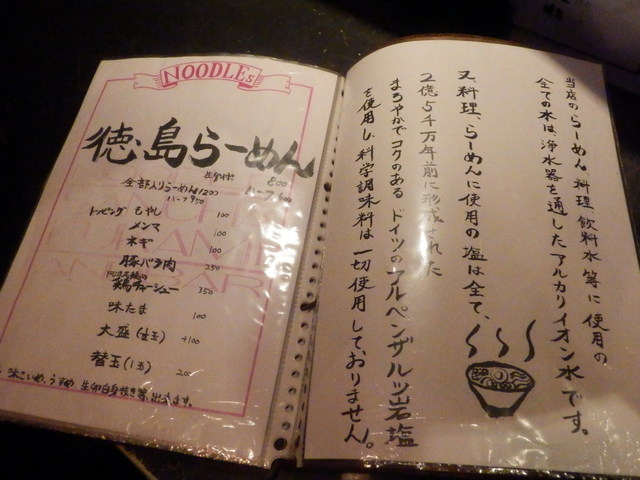 NOODLEs
徳島らーめん
生卵付 800
ハーフ 600
全部入りらーめん 1200
ハーフ 950
トッピング もやし 100
メンマ 100
ネギ 100
豚バラ肉 250
鶏チャーシュー 350
味たま 100
大盛(1.5玉) +100
替玉(1玉) 200
味こいめ、うすめ、生卵白身抜き等、出来ます。
当店のらーめん、料理、飲料水等に使用の
全ての水は、浄水器を通したアルカリイオン水です。
又、料理、らーめんに使用の塩は全て、
2億5千万年前に形成された
まろやかでコクのあるドイツのアルペンザルツ岩塩
を使用し、科学調味料は一切使用して、おりません。